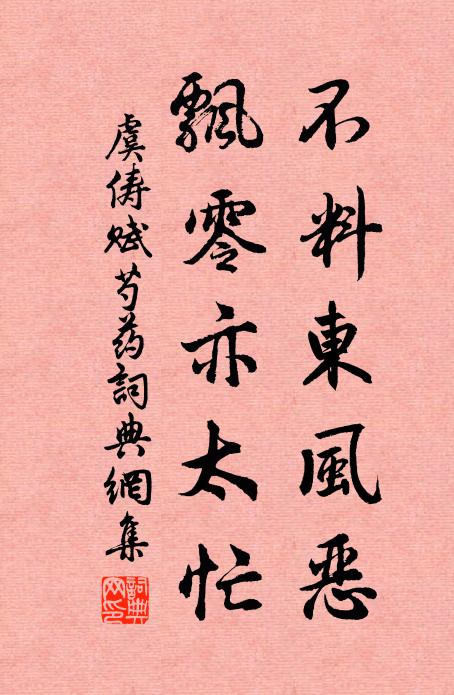 不料東風惡
飄零亦太忙
虞俦賦芍药詞典網集
詞典网印